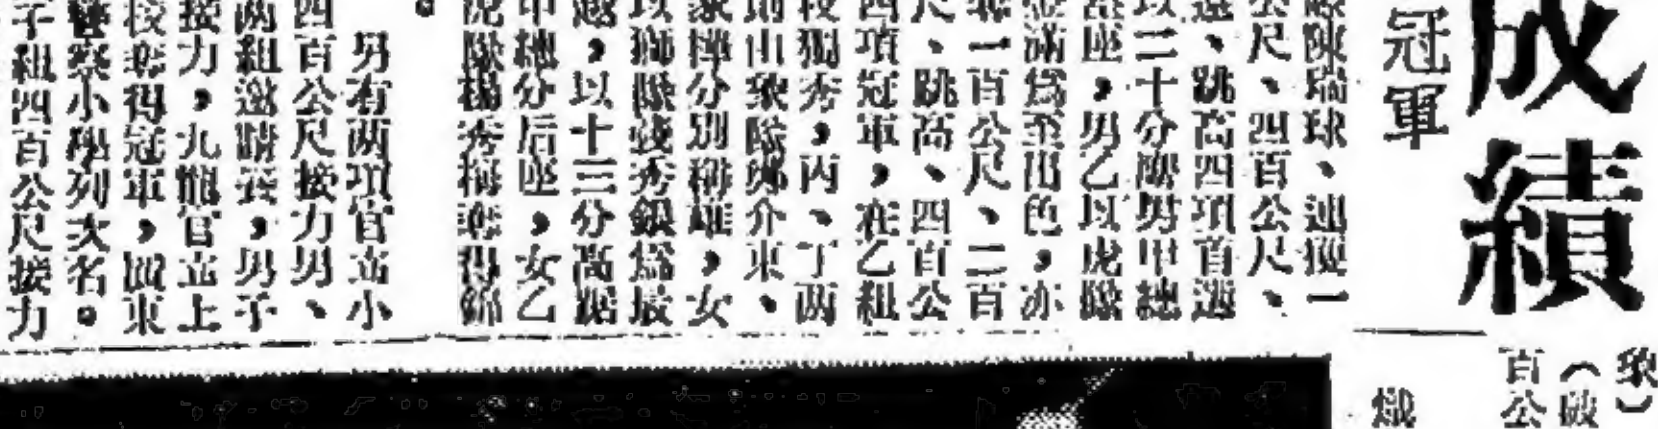 成績
冠軍
陳瑞球、連獲一
公尺、四百公尺、
遠、跳高四項首選
以二十分膺男甲總
座，男乙以虎隊
滿為至出色，亦
一百公尺、二百
尺、跳高、四百公
四項冠軍，在乙組
獨秀，丙、丁两
則由象隊鄭介東、
分別稱雄，女
以獅隊錢秀銀為最
越，以十三分高踞
甲總分后座，女乙
虎隊楊秀梅奪得錦
。
男有两項官立小
四百公尺接力男、
两組邀請賽，男子
接力，九龍官立上
校奪得冠軍，廣東
警察小學列次名。
子組四百公尺接力
象）
（破
百公
熾